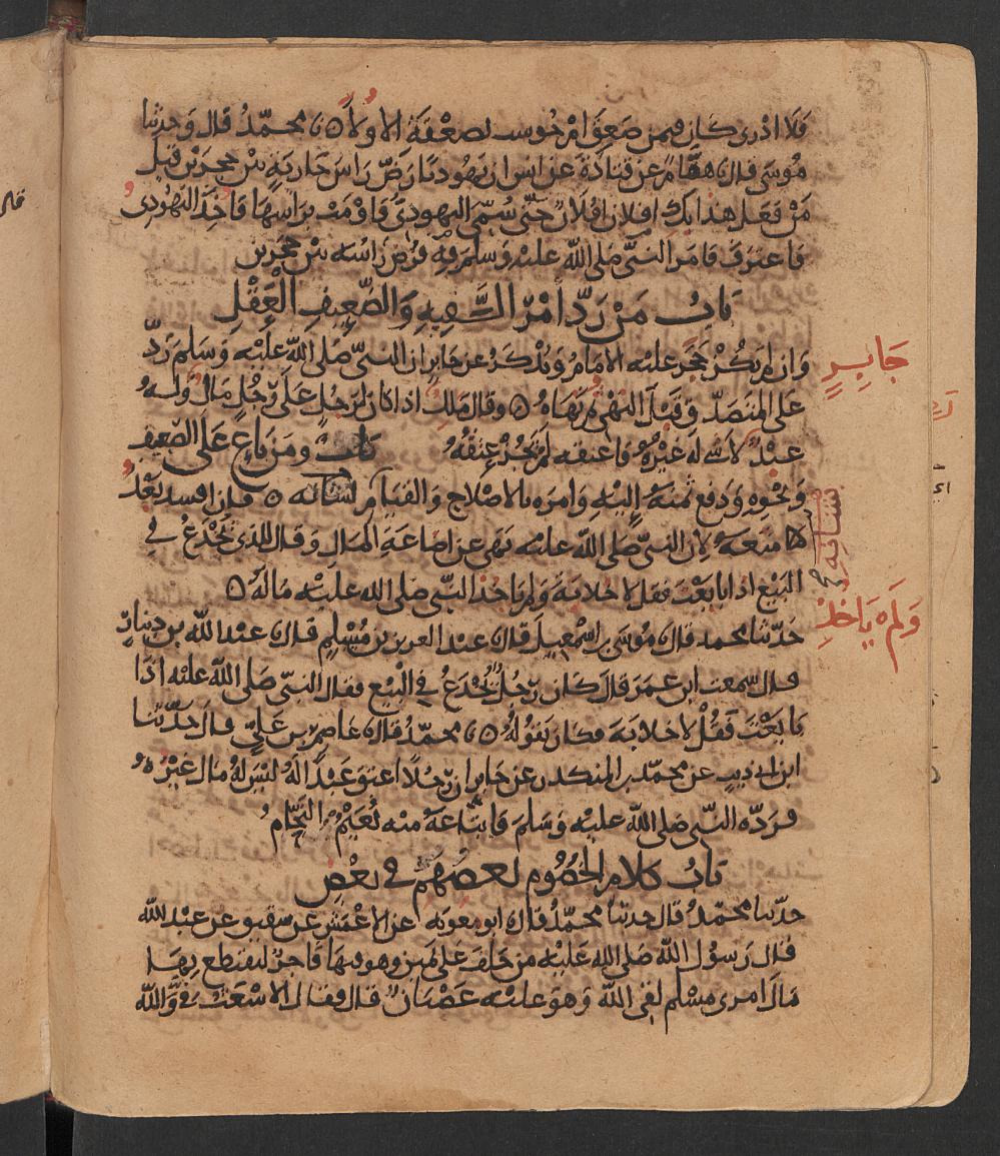 فلا ادرى كان فيمن صعق ام حوسب لصعقة الاولا ٥ نا محمد قال وحدثنا
موسى قال نا همام عن قتادة عن انس ان يهوديا رض راس جارية بين حجرين قيل
من فعل هذا بك افلان افلان حتى سمى اليهودى فاومت براسها فاخذ اليهودى
فاعترف فامر النبى صلى الله عليه وسلم به فرض راسه بين حجرين
باب من رد امر السفيه والضعيف العقل
وان لم يكن حجر عليه الامام ويذكر عن جابر ان النبى صلى الله عليه وسلم رد
جابر
على المتصدق قبل النهى ثم نهاه ٥ وقال ملك اذا كان لرجل على رجل مال وله
عبد لا شى له غيره فاعتقه لم يجز عتقه باب ومن باع على الضعيف
ونحوه ودفع ثمنه اليه وامره بالاصلاح والقيام لشانه ٥ فان افسد بعد
بشانه
منعه لان النبى صلى الله عليه نهى عن اضاعة المال وقال للذى يخدع فى
البيع اذا بايعت فقل لا خلابة ولم ياخذ النبى صلى الله عليه ماله ٥
ولم ياخذ
حدثنا محمد قال نا موسى بن اسمعيل قال نا عبد العزيز بن مسلم قال نا عبد الله بن دينار
قال سمعت ابن عمر قال كان رجل يخدع فى البيع فقال النبى صلى الله عليه اذا
بايعت فقل لا خلابة فكان يقوله ٥ نا محمد قال نا عاصم بن على قال حدثنا
ابن ابى ذيب عن محمد بن المنكدر عن جابر ان رجلا اعتق عبدا له ليس له مال غيره
فرده النبى صلى الله عليه وسلم فابتاعه منه نعيم بن النحام
باب كلام الخصوم بعضهم فى بعض
حدثنا محمد قال حدثنا محمد قال نا ابو معوية عن الاعمش عن شقيق عن عبد الله
قال رسول الله صلى الله عليه من حلف على يمين وهو فيها فاجر ليقتطع بها
مال امرى مسلم لقى الله وهو عليه غضبان قال فقال الاشعث فى والله